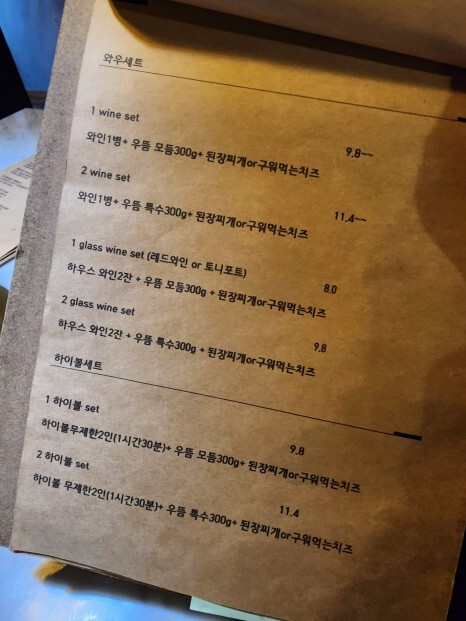 와우세트
1 wine set 9.8~~
와인1병+ 우뜸 모듬300g+ 된장찌개or구워먹는치즈
2 wine set 11.4~~
와인1병+ 우뜸 특수300g+ 된장찌개or구워먹는치즈
1 glass wine set (레드와인 or 토니포트) 8.0
하우스 와인2잔 + 우뜸 모듬300g + 된장찌개or구워먹는치즈
2 glass wine set 9.8
하우스 와인2잔 + 우뜸 특수300g + 된장찌개or구워먹는치즈
하이볼세트
1 하이볼 set 9.8
하이볼무제한2인(1시간30분)+ 우뜸 모듬300g+ 된장찌개or구워먹는치즈
2 하이볼 set 11.4
하이볼 무제한2인(1시간30분)+ 우뜸 특수300g+ 된장찌개or구워먹는치즈